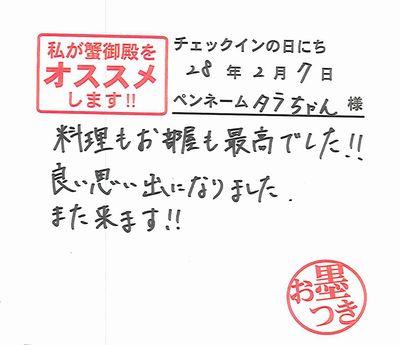 私が蟹御殿を
オススメ
します!!
チェックインの日にち
28年2月7日
ペンネーム タラちゃん 様
料理もお部屋も最高でした!!
良い思い出になりました.
また来ます!!
お墨つき